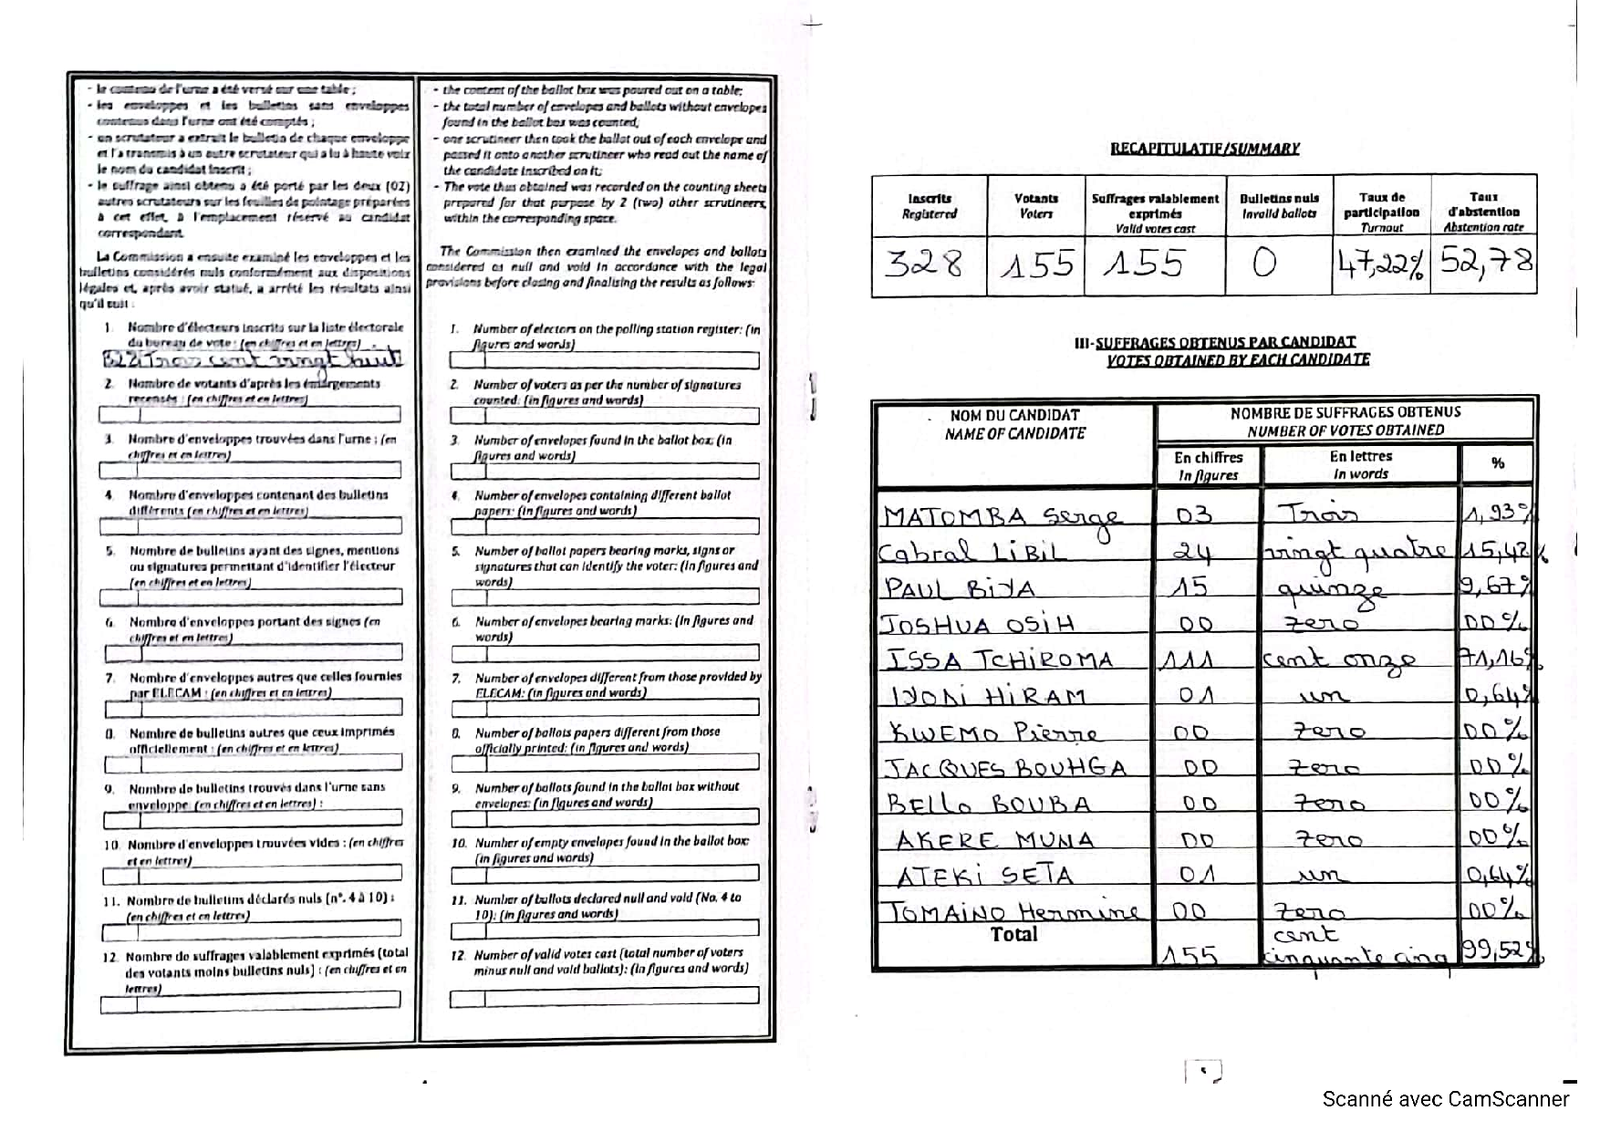 - le contenu de l'urne a été versé sur une table ;
- les enveloppes et les bulletins sans enveloppes
contenus dans l'urne ont été comptés ;
- un scrutateur a extrait le bulletin de chaque enveloppe
et l'a transmis à un autre scrutateur qui a lu à haute voix
le nom du candidat inscrit ;
- le suffrage ainsi obtenu a été porté par les deux (02)
autres scrutateurs sur les feuilles de pointage préparées
à cet effet, à l'emplacement réservé au candidat
correspondant.
La Commission a ensuite examiné les enveloppes et les
bulletins considérés nuls conformément aux dispositions
légales et, après avoir statué, a arrêté les résultats ainsi
qu'il suit :
1. Nombre d'électeurs inscrits sur la liste électorale
du bureau de vote : (en chiffres et en lettres)
328 Trois cent vingt huit
2. Nombre de votants d'après les émargements
recensés : (en chiffres et en lettres)
3. Nombre d'enveloppes trouvées dans l'urne : (en
chiffres et en lettres)
4. Nombre d'enveloppes contenant des bulletins
différents (en chiffres et en lettres)
5. Nombre de bulletins ayant des signes, mentions
ou signatures permettant d'identifier l'électeur
(en chiffres et en lettres)
6. Nombre d'enveloppes portant des signes (en
chiffres et en lettres)
7. Nombre d'enveloppes autres que celles fournies
par ELECAM : (en chiffres et en lettres)
8. Nombre de bulletins autres que ceux imprimés
officiellement : (en chiffres et en lettres)
9. Nombre de bulletins trouvés dans l'urne sans
enveloppe (en chiffres et en lettres) :
10. Nombre d'enveloppes trouvées vides : (en chiffres
et en lettres)
11. Nombre de bulletins déclarés nuls (n°. 4 à 10) :
(en chiffres et en lettres)
12. Nombre de suffrages valablement exprimés (total
des votants moins bulletins nuls) : (en chiffres et en
lettres)
- the content of the ballot box was poured out on a table;
- the total number of envelopes and ballots without envelopes
found in the ballot box was counted,
- one scrutineer then took the ballot out of each envelope and
passed it onto another scrutineer who read out the name of
the candidate inscribed on it;
- The vote thus obtained was recorded on the counting sheets
prepared for that purpose by 2 (two) other scrutineers,
within the corresponding space.
The Commission then examined the envelopes and ballots
considered as null and void in accordance with the legal
provisions before closing and finalising the results as follows:
1. Number of electors on the polling station register: (in
figures and words)
2. Number of voters as per the number of signatures
counted: (in figures and words)
3. Number of envelopes found in the ballot box: (in
figures and words)
4. Number of envelopes containing different ballot
papers: (in figures and words)
5. Number of ballot papers bearing marks, signs or
signatures that can identify the voter: (in figures and
words)
6. Number of envelopes bearing marks: (in figures and
words)
7. Number of envelopes different from those provided by
ELECAM: (in figures and words)
8. Number of ballots papers different from those
officially printed: (in figures and words)
9. Number of ballots found in the ballot box without
envelopes: (in figures and words)
10. Number of empty envelopes found in the ballot box:
(in figures and words)
11. Number of ballots declared null and void (No. 4 to
10): (in figures and words)
12. Number of valid votes cast (total number of voters
minus null and void ballots): (in figures and words)
RECAPITULATIF/SUMMARY
Inscrits Registered Votants Voters Suffrages valablement exprimés Valid votes cast Bulletins nuls Invalid ballots Taux de participation Turnout Taux d'abstention Abstention rate
328 155 155 0 47,22% 52,78
III-SUFFRAGES OBTENUS PAR CANDIDAT
VOTES OBTAINED BY EACH CANDIDATE
NOM DU CANDIDAT NOMBRE DE SUFFRAGES OBTENUS
NAME OF CANDIDATE NUMBER OF VOTES OBTAINED
En chiffres En lettres %
In figures In words
MATOMBA Serge 03 Trois 1,93%
Cabral LiBiL 24 vingt quatre 15,42%
PAUL BiYA 15 quinze 9,67%
JOSHUA OSiH 00 zero 00%
ISSA TCHiROMA 111 cent onze 71,16%
IYODI HiRAM 01 un 0,64%
KWEMO Pierre 00 zero 00%
JACQUES BOUHGA 00 zero 00%
BELLo BOUBA 00 zero 00%
AKERE MUNA 00 zero 00%
ATEKi SETA 01 un 0,64%
TOMAINO Hermine 00 zero 00%
Total 155 cent cinquante cinq 99,52%
Scanné avec CamScanner